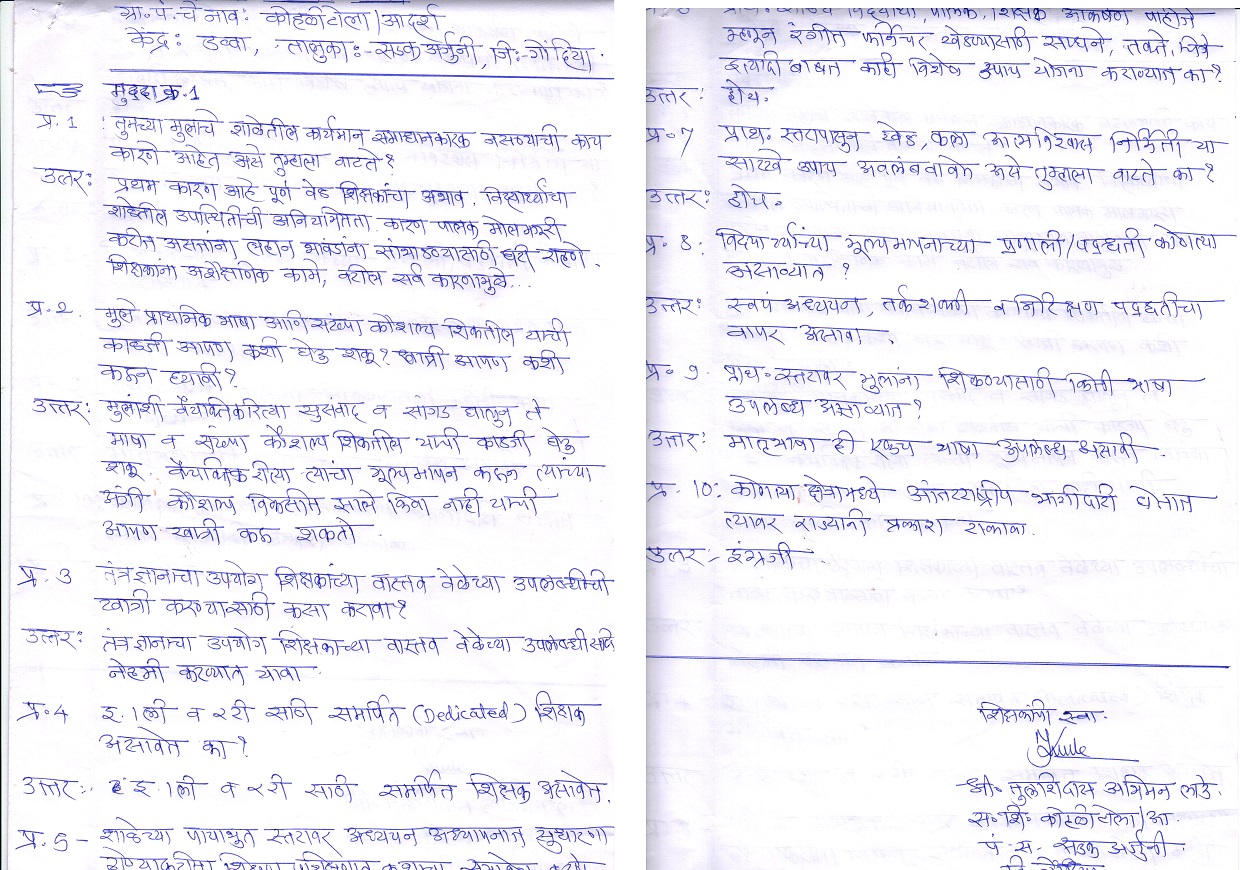 ग्रा.पं.चे नाव: कोहळीटोला/आदर्श
केंद्र: डव्वा, तालुका:-सडक अर्जुनी, जि:-गोंदिया.
मुद्दा क्र.1
प्र.1 तुमच्या मुलाचे शाळेतील कार्यमान समाधानकारक नसल्याची काय
कारणे आहेत असे तुम्हाला वाटते?
उत्तर: प्रथम कारण आहे पूर्ण वेळ शिक्षकांचा अभाव, विद्यार्थ्यांचा
शाळेतील उपस्थितीची अनियमितता. कारण पालक मोलमजुरी
करीत असतांना लहान भावंडांना सांभाळण्यासाठी घरी राहणे.
शिक्षकांना अशैक्षणिक कामे, वरील सर्व कारणामुळे...
प्र.2. मुले प्राथमिक भाषा आणि संख्या कौशल्य शिकतील याची
काळजी आपण कशी घेऊ शकू? खात्री आपण कशी
करून घ्यावी?
उत्तर: मुलांशी वैयक्तिकरित्या सुसंवाद व सांगड घालून ते
भाषा व संख्या कौशल्य शिकतील याची काळजी घेऊ
शकू. वैयक्तिकरीत्या त्यांचा मूल्यमापन करून त्याच्या
अंगी कौशल्य विकसीत झाले किंवा नाही याची
आपण खात्री करू शकतो.
प्र. 3 तंत्रज्ञानाचा उपयोग शिक्षकांच्या वास्तव वेळेच्या उपलब्धीची
खात्री करण्यासाठी कसा करावा?
उत्तर: तंत्रज्ञानाचा उपयोग शिक्षकाच्या वास्तव वेळेच्या उपलब्धी
नेहमी करण्यात यावा.
प्र.4 इ.1ली व २री साठी समर्पित (Dedicated) शिक्षक
असावेत का?
उत्तर:- इ.1ली व २री साठी समर्पित शिक्षक असावेत.
प्र. 5 - शाळेच्या पायाभूत स्तरावर अध्ययन अध्यापनात सुधारणा
विद्यार्थी, पालक, शिक्षक आकर्षण पाहीजे
म्हणून रंगीत फर्निचर खेळण्यासाठी साधने, तक्ते, चित्रे
इत्यादी बाबत काही विशेष उपाय योजना कराव्यात का?
उत्तर: होय.
प्र.7 प्राथ. स्तरापासुन खेळ, कला आत्मविश्वास निर्मिती या
सारखे उपाय अवलंबवावेत असे तुम्हाला वाटते का?
उत्तर: होय.
प्र. 8. विद्यार्थ्यांच्या मूल्यमापनाच्या प्रणाली/पद्धती कोणत्या
असाव्यात ?
उत्तर: स्वयं अध्ययन, तर्कशक्ती व निरिक्षण पद्धतीचा
वापर असावा.
प्र. 9. प्राथ. स्तरावर मुलांना शिकण्यासाठी किती भाषा
उपलब्ध असाव्यात?
उत्तर: मातृभाषा ही एकच भाषा उपलब्ध असावी.
प्र. 10. कोणत्या क्षेत्रामध्ये आंतरराष्ट्रीय भागीदारी
त्यावर राज्यांनी प्रकाश टाकावा.
उत्तर:- इंग्रजी.
शिक्षकांची स्वा.
श्री. तुलशिदास अभिमन लाडे.
स. शि. कोहळीटोला/आ.
पं. स. सडक अर्जुनी.